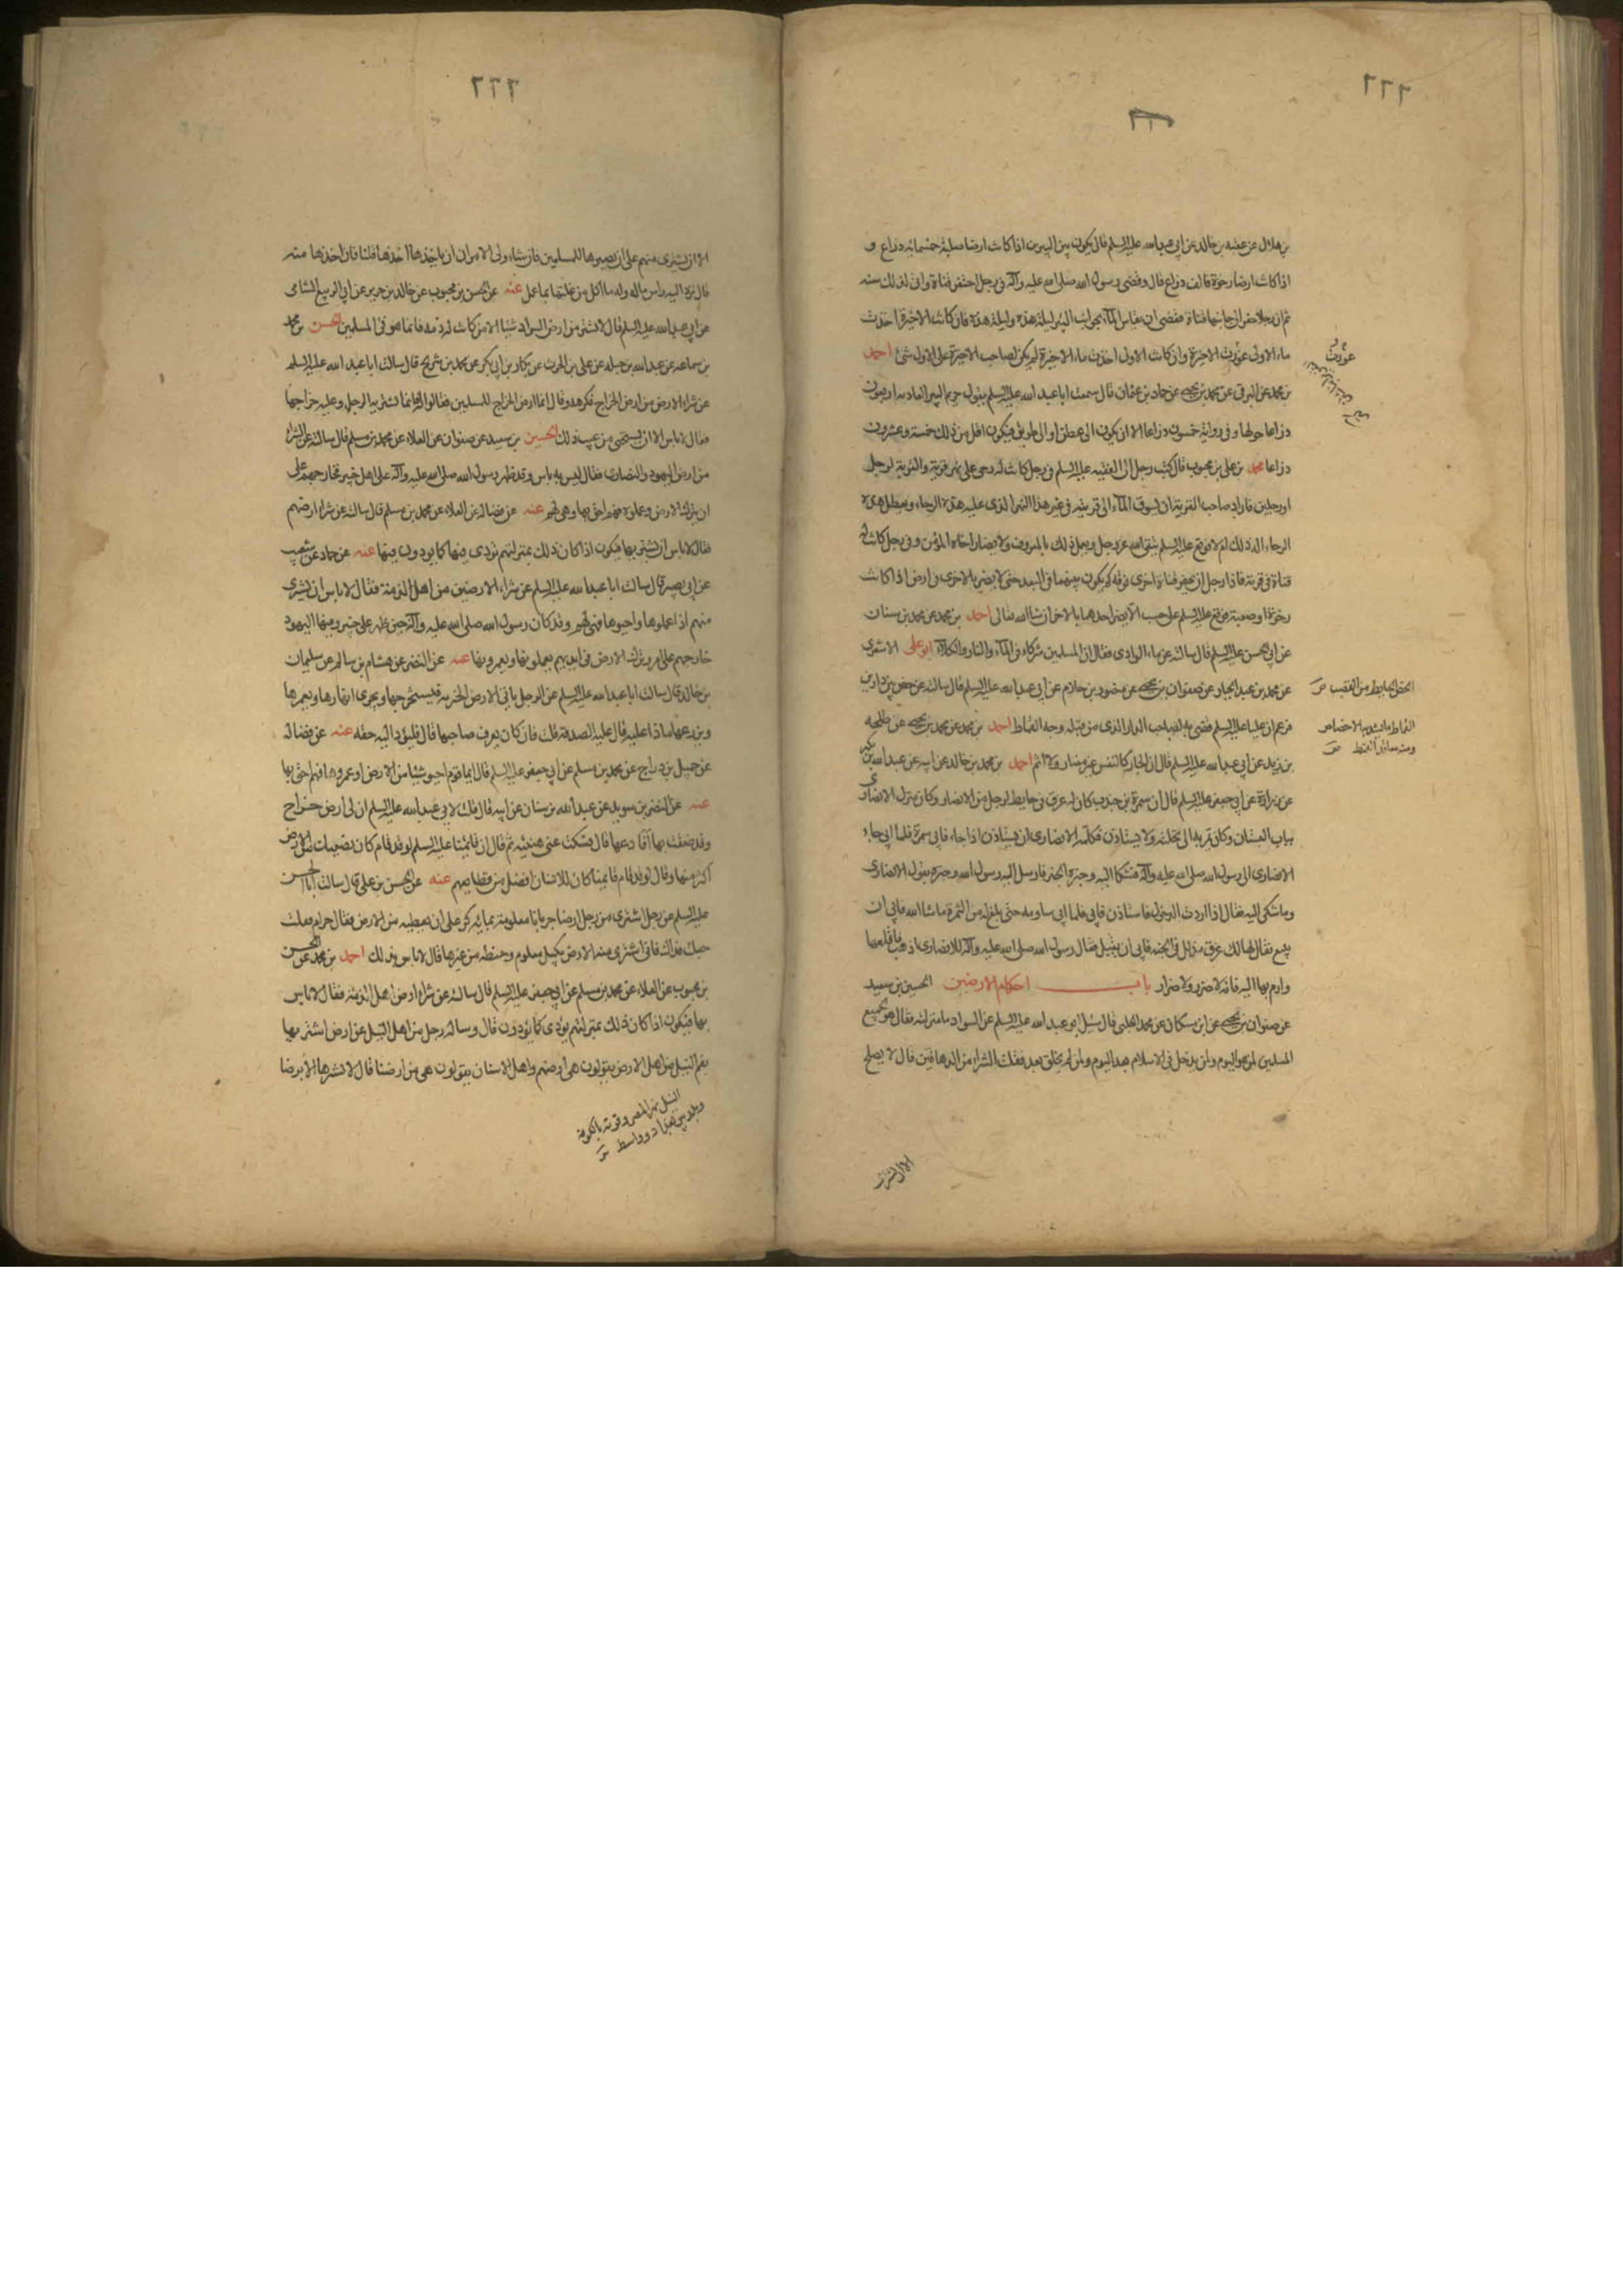 ٢٦٦
بن هلال عن عقبة بن خالد عن ابي عبدالله عليه السلم قال يكون بين البيرين اذا كانت ارضا صلبة خمسمائة ذراع و
اذا كانت ارضا رخوة فالف ذراع قال وقضى رسول الله صلى الله عليه وآله في رجل احتفر قناة واتى لذلك سنة
ثم ان رجلا حفر الى جانبها قناة فقضى ان يقاس الماء بجوانب البئر ليلة هذه وليلة هذه فان كانت الاخيرة اخذت
ماء الاولى عورت الاخيرة وان كانت الاولى اخذت ماء الاخيرة لم يكن لصاحب الاخيرة على الاول شئ احمد
بن محمد عن البرقى عن محمد بن يحيى عن حماد بن عثمان قال سمعت ابا عبد الله عليه السلم يقول حريم البير العادية اربعون
ذراعا حولها وفى رواية خمسون ذراعا الا ان يكون الى عطن او الى طريق فيكون اقل من ذلك خمسة وعشرون
ذراعا محمد بن على بن محبوب قال كتب رجل الى الفقيه عليه السلم في رجل كانت له رحى على نهر قرية والقرية لرجل
او رجلين فاراد صاحب القرية ان يسوق الماء الى قريته في غير هذا النهر الذى عليه هذه الرحاء ويعطل هذه
الرحاء اله ذلك ام لا فوقع عليه السلم يتقى الله عز وجل ويعمل ذلك بالمعروف ولا يضار اخاه المؤمن وفى رجل كانت له
قناة فى قرية فاراد رجل ان يحفر قناة اخرى فوقه كم يكون بينهما فى البعد حتى لا يضر بالاخرى فى ارض اذا كانت
رخوة او صعبة فوقع عليه السلم على حسب الا يضر احدهما بالاخر ان شاالله تعالى احمد بن محمد عن محمد بن سنان
عن ابى الحسن عليه السلم قال سالته عن ماء الوادى فقال ان المسلمين شركاء فى الماء والنار والكلاء ابو على الاشعرى
عن محمد بن عبد الجبار عن صفوان بن يحيى عن منصور بن حازم عن ابي عبدالله عليه السلم قال سالته عن خص بين دارين
فزعم ان عليا عليه السلم قضى به لصاحب الدار الذى من قبله وجه القماط احمد بن محمد عن محمد بن يحيى عن طلحه
بن زيد عن ابي عبدالله عليه السلم قال ان الجار كالنفس غير مضار ولا اثم احمد بن محمد بن خالد عن ابيه عن عبدالله بن بكير
عن زرارة عن ابي جعفر عليه السلم قال ان سمرة بن جندب كان له عرق فى حايط لرجل من الانصار وكان منزل الانصارى
بباب البستان وكان يمر به الى نخلته ولا يستاذن فكلمه الانصارى ان يستاذن اذا جاء فابى سمرة فلما ابى جاء
الانصارى الى رسول الله صلى الله عليه وآله فشكا اليه وخبره الخبر فارسل اليه رسول الله وخبره بقول الانصارى
وما شكى اليه فقال اذا اردت الدخول فاستاذن فابى فلما ابى ساومه حتى بلغ له من الثمرة ماشا الله فابى ان
يبيع فقال لها لك عرق مذلل فى الجنه فابى ان يقبل فقال رسول الله صلى الله عليه وآله للانصارى اذهب فاقلعها
وارم بها اليه فانه لا ضرر ولا ضرار باب احكام الارضين الحسين بن سعيد
عن صفوان بن يحيى عن ابن مسكان عن محمد الحلبى قال سئل ابو عبد الله عليه السلم عن السواد ما منزلته فقال هو لجميع
المسلمين لمن هو اليوم ولمن يدخل فى الاسلام بعد اليوم ولمن لم يخلق بعد فقلت الشراء من الدهاقين قال لا يصلح
عورت
الخص الحايط من القصب ص
القماط ما يشد به الاخصاص
ومنه معاقد القمط ص
الا ان يشترى
٢٦٦
الا ان يشترى منهم على ان يصيرها للمسلمين فان شاء ولى الامر ان ياخذها اخذها قلنا فان اخذها منه
قال يرد اليه راس ماله وله ما اكل من غلتها بما عمل عنه عن الحسن بن محبوب عن خالد بن جرير عن ابى الربيع الشامى
عن ابي عبدالله عليه السلم قال لا تشتر من ارض السواد شيئا الا من كانت له ذمة فانما هو فئ للمسلمين الحسن بن محمد
بن سماعه عن عبدالله بن جبله عن على بن الحرث عن بكار بن ابى بكر عن محمد بن شريح قال سالت ابا عبد الله عليه السلم
عن شراء الارض من ارض الخراج فكرهه وقال انما ارض الخراج للمسلمين فقالوا له فانه يشتريها الرجل وعليه خراجها
فقال لا باس الا ان يستحيى من عيب ذلك الحسين بن سعيد عن صفوان عن العلاء عن محمد بن مسلم قال سالته عن الشراء
من ارض اليهود والنصارى فقال ليس به باس وقد ظهر رسول الله صلى الله عليه وآله على اهل خيبر فخارجهم على
ان يترك الارض فى ايديهم يعملونها ويعمرونها عنه عن فضالة عن العلاء عن محمد بن مسلم قال سالته عن شراء ارضهم
فقال لا باس ان تشتريها فيكون اذا كان ذلك بمنزلتهم تؤدى فيها كما يؤدون فيها عنه عن حماد عن شعيب
عن ابى بصير قال سالت ابا عبدالله عليه السلم عن شراء الارضين من اهل الذمة فقال لا باس ان يشترى
منهم اذا عملوها واحيوها فهى لهم وقد كان رسول الله صلى الله عليه وآله حين ظهر على خيبر وفيها اليهود
خارجهم على امر وترك الارض فى ايديهم يعملونها ويعمرونها عنه عن النضر عن هشام بن سالم عن سليمان
بن خالد قال سالت ابا عبدالله عليه السلم عن الرجل ياتى الارض الخربة فيستخرجها ويجرى انهارها ويعمرها
ويزرعها ماذا عليه قال عليه الصدقة قلت فان كان يعرف صاحبها قال فليؤد اليه حقه عنه عن فضاله
عن جميل بن دراج عن محمد بن مسلم عن ابي جعفر عليه السلم قال ايما قوم احيوا شيئا من الارض او عمروها فهم احق بها
عنه عن النضر بن سويد عن عبدالله بن سنان عن ابيه قال قلت لابي عبدالله عليه السلم ان لى ارض خراج
وقد ضقت بها افادعها قال فسكت عنى هنيئة ثم قال ان قائمنا عليه السلم لو قد قام كان نصيبك من الارض
اكثر منها وقال لو قد قام قائمنا كان للانسان افضل من قطايعهم عنه عن الحسن بن على قال سالت ابا الحسن
عليه السلم عن رجل اشترى من رجل ارضا جربانا معلومة بمائة كر على ان يعطيه من الارض فقال حرام فقلت
جعلت فداك فانى اشترى منه الارض بكيل معلوم وحنطة من غيرها قال لا باس بذلك احمد بن محمد عن الحسن
بن محبوب عن العلاء عن محمد بن مسلم عن ابى جعفر عليه السلم قال سالته عن شراء ارض اهل الذمة فقال لا باس
بها فيكون اذا كان ذلك بمنزلتهم يؤدى كما يؤدون قال وساله رجل من اهل النيل عن ارض اشتريها
بفم النيل من اهل الارض يقولون هى ارضهم واهل الاستان يقولون هى من ارضنا قال لا تشترها الا برضا
النيل نهر المصر وقرية بالكوفة
وبلد بين بغداد وواسط ص